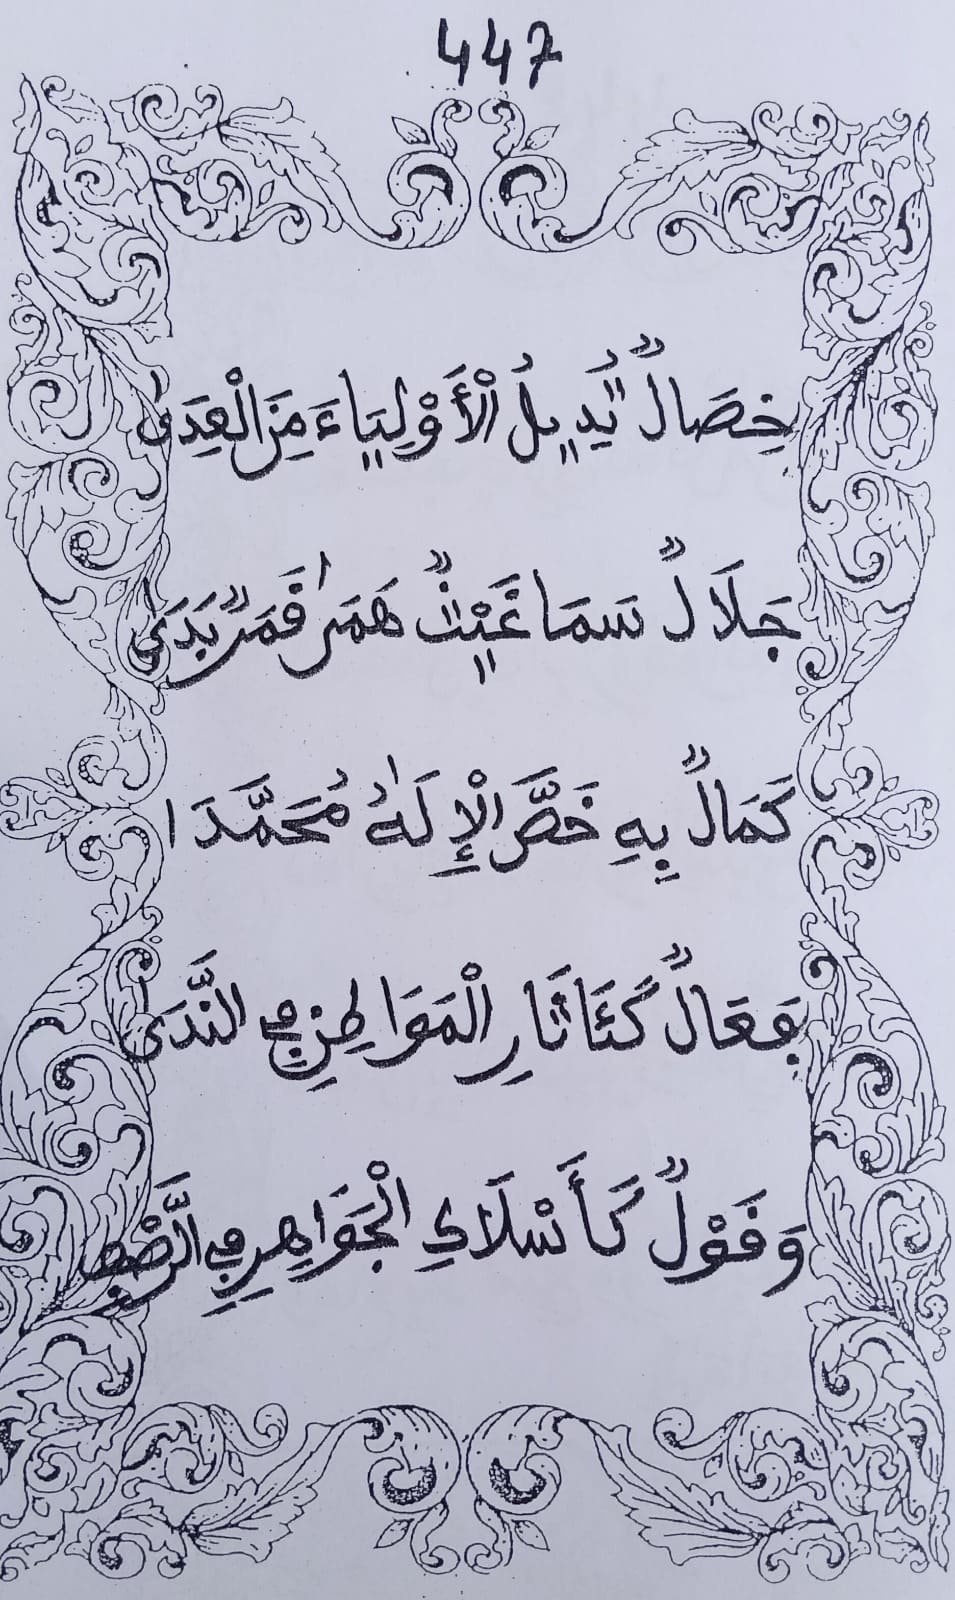 447
خِصَالٌ يُدِيلُ الْأَوْلِيَاءَ مِنَ الْعِدَى
جَلَالٌ سَمَا غَيْثٌ هَمَى قَمَرٌ بَدَى
كَمَالٌ بِهِ خَصَّ الْإِلَهُ مُحَمَّدَا
فِعَالٌ كَئَاثَارِ الْمَوَاطِرِ فِي النَّدَى
وَقَوْلٌ كَأَسْلَاكِ الْجَوَاهِرِ فِي